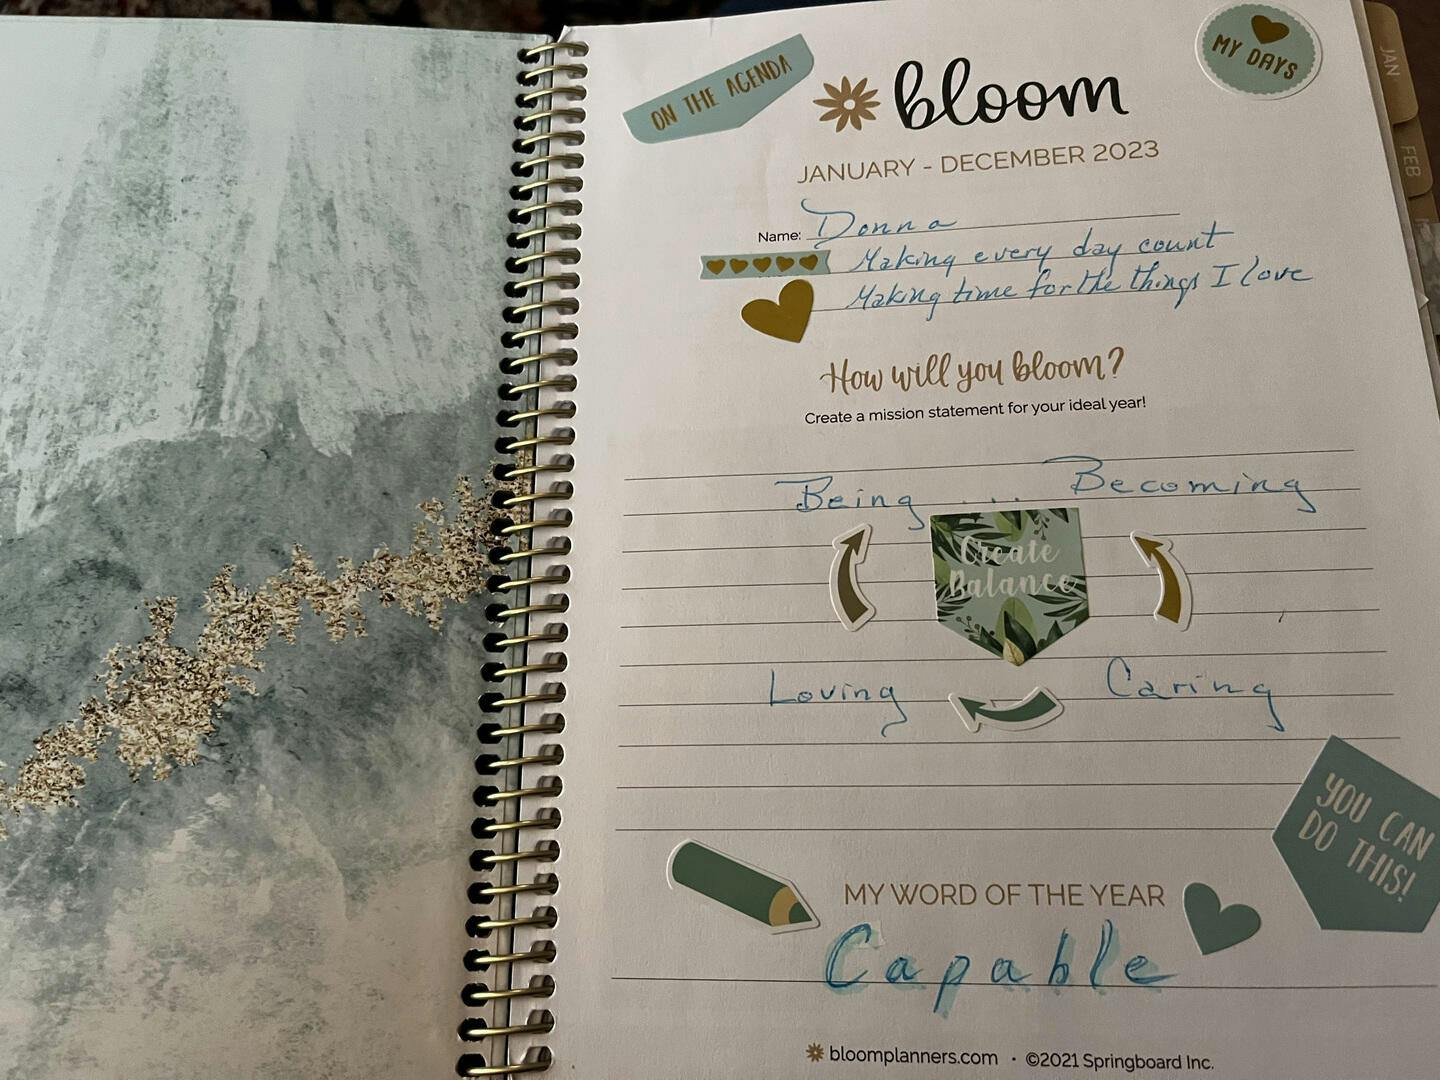 ON THE AGENDA
bloom
MY DAYS
JAN
FEB
JANUARY - DECEMBER 2023
Name: Donna
Making every day count
Making time for the things I love
How will you bloom?
Create a mission statement for your ideal year!
Being ... Becoming
Create
Balance
Loving Caring
YOU CAN
DO THIS!
MY WORD OF THE YEAR
Capable
bloomplanners.com · ©2021 Springboard Inc.